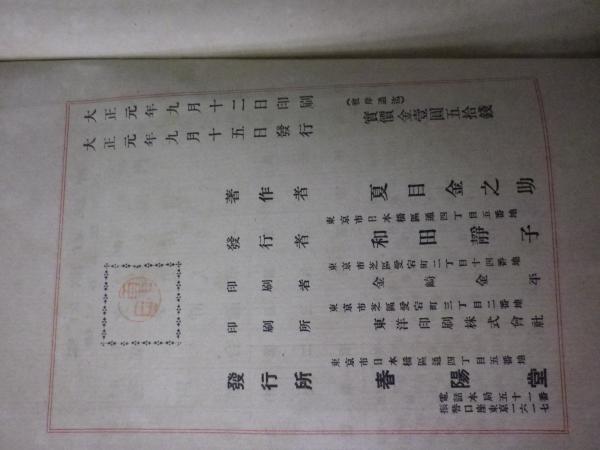 大正元年九月十二日印刷
大正元年九月十五日發行
(彼岸過迄)
實價金壹圓五拾錢
著作者 夏目金之助
東京市日本橋區通四丁目五番地
發行者 和田靜子
東京市芝區愛宕町二丁目十四番地
印刷者 金崎金平
東京市芝區愛宕町三丁目二番地
印刷所 東洋印刷株式會社
東京市日本橋區通四丁目五番地
發行所 春陽堂
電話本局五十一番
振替口座東京一六一七